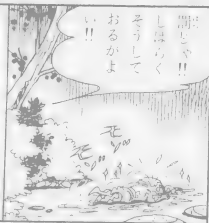 罰じゃ!!
しばらく
そうして
おるがよ
い!!
モゾ
モゾ